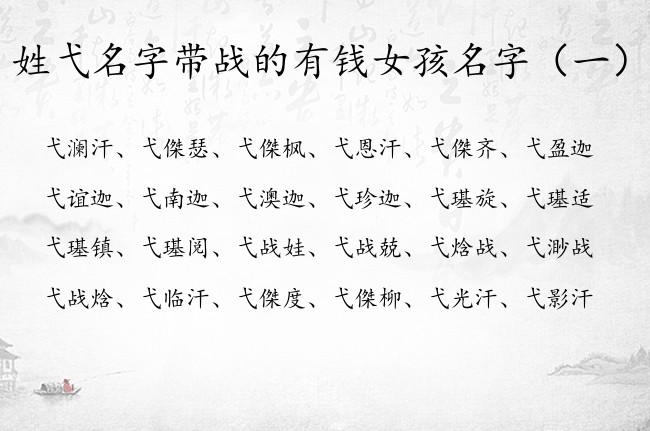 姓弋名字带战的有钱女孩名字（一）
弋澜汗、弋傑瑟、弋傑枫、弋恩汗、弋傑齐、弋盈迦
弋谊迦、弋南迦、弋澳迦、弋珍迦、弋琎旋、弋琎适
弋琎镇、弋琎阅、弋战娃、弋战兢、弋焓战、弋渺战
弋战焓、弋临汗、弋傑度、弋傑柳、弋光汗、弋影汗